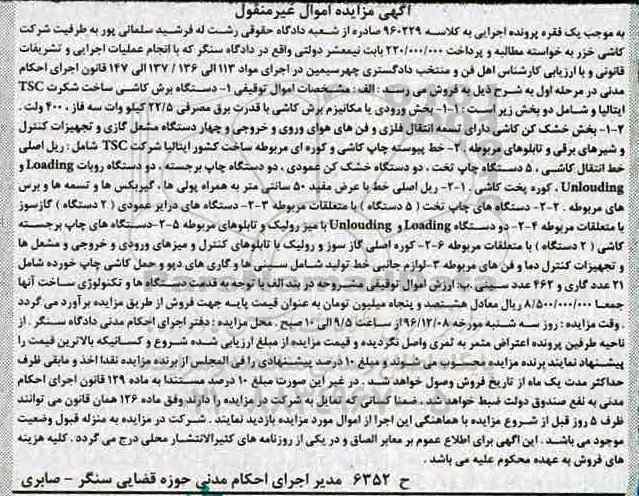 آگهی مزایده اموال غیرمنقول
به موجب یک فقره پرونده اجرایی به کلاسه ۹۶۰۲۲۹ صادره از شعبه دادگاه حقوقی رشت له فرشید سلمانی پور به طرفیت شرکت
کاشی خزر به خواسته مطالبه و پرداخت ۲۲۰/۰۰۰/۰۰۰ بابت نیمعشر دولتی واقع در دادگاه سنگر که با انجام عملیات اجرایی و تشریفات
قانونی و با ارزیابی کارشناس اهل فن و منتخب دادگستری چهرسیمین در اجرای مواد ۱۱۳ الی ۱۳۶ / ۱۳۷ الی ۱۴۷ قانون اجرای احکام
مدنی در مرحله اول به شرح ذیل به فروش می رسد : الف : مشخصات اموال توقیفی ۱- دستگاه برش کاشی ساخت شکرت TSC
ایتالیا و شامل دو بخش زیر است : ۱-۱- بخش ورودی یا مکانیزم برش کاشی با قدرت برق مصرفی ۲۲/۵ کیلو وات سه فاز ، ۴۰۰ ولت .
۲-۱- بخش خشک کن کاشی دارای تسمه انتقال فلزی و فن های هوای ورودی و خروجی و چهار دستگاه مشعل گازی و تجهیزات کنترل
و شیرهای برقی و تابلوهای مربوطه . ۲- خط پیوسته چاپ کاشی و کوره ای مربوطه ساخت کشور ایتالیا شرکت TSC شامل : ریل اصلی
خط انتقال کاشی ، ۵ دستگاه چاپ تخت ، دو دستگاه خشک کن عمودی ، دو دستگاه چاپ برجسته . دو دستگاه روبات Loading و
Unlouding ، کوره پخت کاشی . ۱-۲- ریل اصلی خط با عرض مفید ۵۰ سانتی متر به همراه پولی ها ، گیربکس ها و تسمه ها و برس
های مربوطه . ۲-۲- دستگاه های چاپ تخت ( ۵ دستگاه ) با متعلقات مربوطه ۳-۲- دستگاه های درایر عمودی ( ۲ دستگاه ) گازسوز
با متعلقات مربوطه ۴-۲- دو دستگاه Loading و Unlouding با میز رولیک و تابلوهای مربوطه ۵-۲- دستگاه های چاپ برجسته
کاشی ( ۲ دستگاه ) با متعلقات مربوطه ۶-۲- کوره اصلی گاز سوز و رولیک با تابلوهای کنترل و میزهای ورودی و خروجی و مشعل ها
و تجهیزات کنترل دما و فن های مربوطه ۳- لوازم جانبی خط تولید شامل سینی ها و گاری های دپو و حمل کاشی چاپ خورده شامل
۲۱ عدد گاری و ۴۶۲ عدد سینی .ب: ارزش اموال توقیفی مشروحه در بند الف با توجه به قدمت دستگاه ها و تکنولوژی ساخت آنها
جمعا ۸/۵۰۰/۰۰۰/۰۰۰ ریال معادل هشتصد و پنجاه میلیون تومان به عنوان قیمت پایه جهت فروش از طریق مزایده برآورد می گردد
. وقت مزایده : روز سه شنبه مورخه ۹۶/۱۲/۰۸ از ساعت ۹/۵ الی ۱۰ صبح . محل مزایده : دفتر اجرای احکام مدنی دادگاه سنگر . از
ناحیه طرفین پرونده اعتراض مثمر به ثمری واصل نگردیده و قیمت مزایده از مبلغ ارزیابی شده شروع و کسانیکه بالاترین قیمت را
پیشنهاد نمایند برنده مزایده محسوب می شوند و مبلغ ۱۰ درصد پیشنهادی را فی المجلس از برنده مزایده نقدا اخذ و مابقی ظرف
حداکثر مدت یک ماه از تاریخ فروش وصول خواهد شد . در غیر این صورت مبلغ ۱۰ درصد مستندا به ماده ۱۲۹ قانون اجرای احکام
مدنی به نفع صندوق دولت ضبط خواهد شد . ضمنا کسانی که تمایل به شرکت در مزایده را دارند وفق ماده ۱۲۶ همان قانون می توانند
ظرف ۵ روز قبل از شروع مزایده با هماهنگی این اجرا از اموال مورد مزایده بازدید نمایند . شرکت در مزایده به منزله قبول وضعیت
موجود می باشد . این آگهی برای اطلاع عموم بر معابر الصاق و در یکی از روزنامه های کثیرالانتشار محلی درج می گردد . کلیه هزینه
های فروش به عهده محکوم علیه می باشد .
ح ۶۳۵۲ مدیر اجرای احکام مدنی حوزه قضایی سنگر - صابری